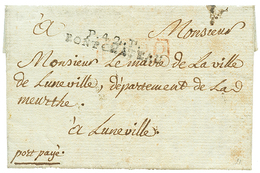 à Monsieur
P.42.P.
PONTCHATEAU
Monsieur le maire de La ville
de Luneville, département de La
meurthe.
à Luneville
port payé